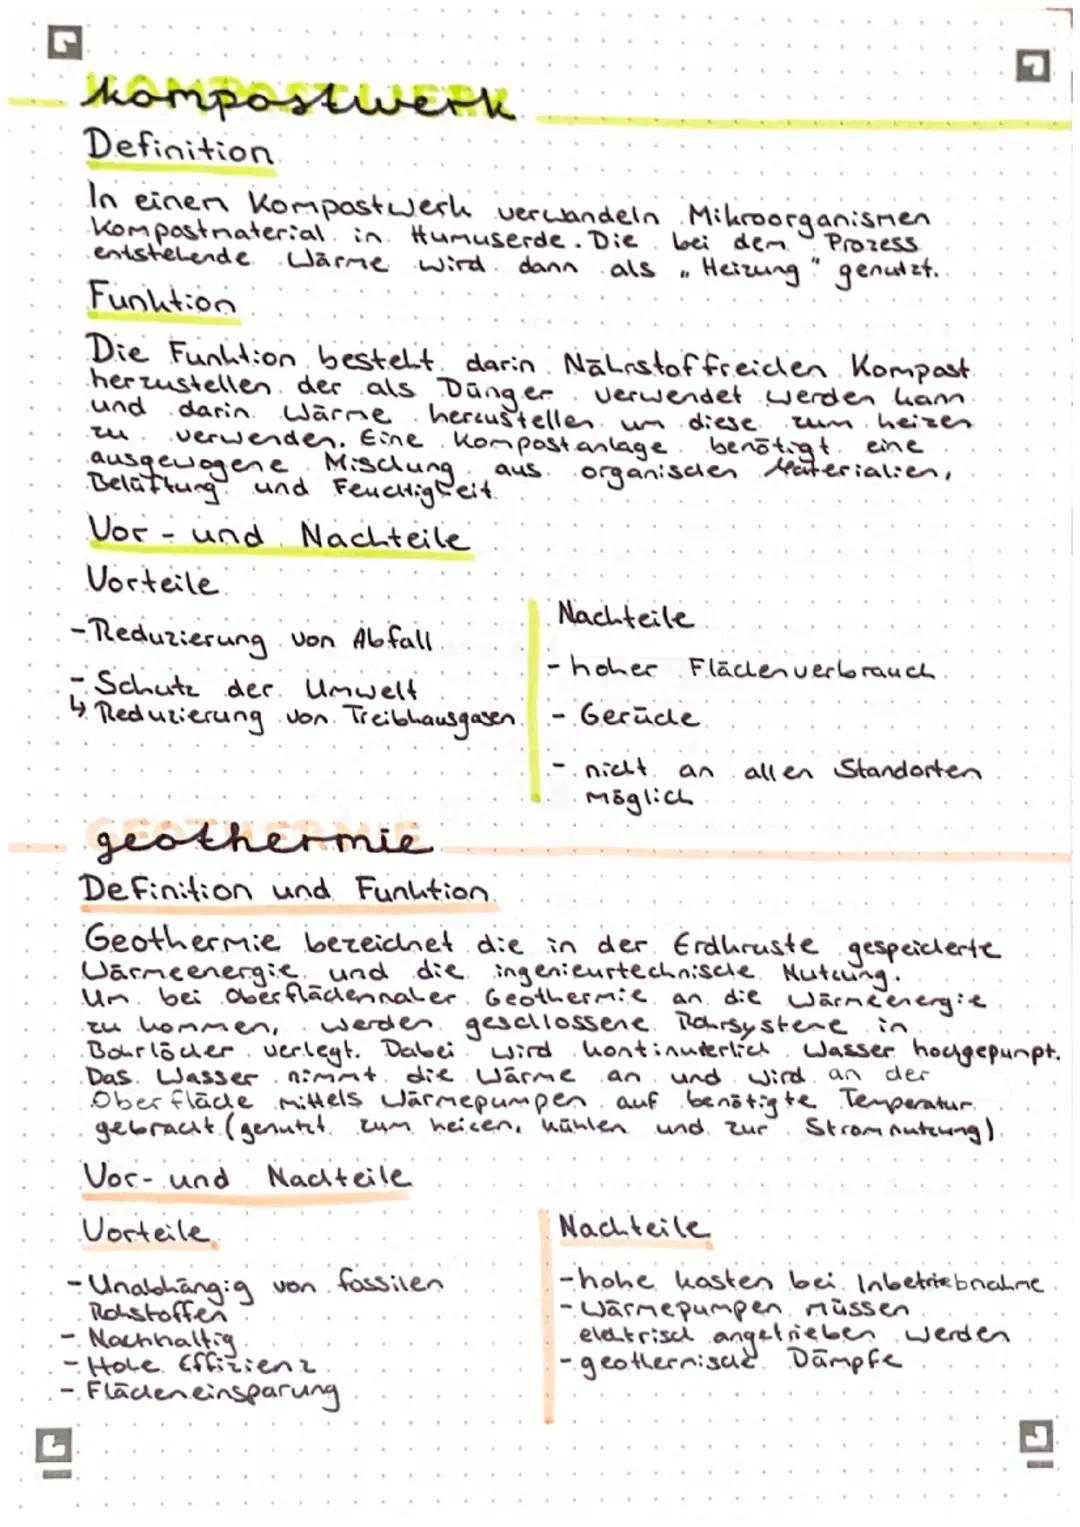 kompostwerk
Definition
In einem Kompostwerk verwandeln Mikroorganismen
Kompostmaterial in Humuserde. Die bei dem Prozess
entstehende Wärme wird dann als „Heizung" genutzt.
Funktion
Die Funktion besteht darin Nährstoffreichen Kompost
herzustellen der als Dünger verwendet werden kann
und darin Wärme herzustellen um diese zum heizen
zu verwenden. Eine Kompostanlage benötigt eine
ausgewogene Mischung aus organischen Materialien,
Belüftung und Feuchtigkeit
Vor- und Nachteile
Vorteile
- Reduzierung von Abfall
- Schutz der Umwelt
↳ Reduzierung von Treibhausgasen
Nachteile
- hoher Flächenverbrauch
- Gerüche
- nicht an allen Standorten
möglich
geothermie
Definition und Funktion
Geothermie bezeichnet die in der Erdkruste gespeicherte
Wärmeenergie und die ingenieurtechnische Nutzung.
Um bei Oberflächennaher Geothermie an die Wärmeenergie
zu kommen, werden geschlossene Rohrsysteme in
Bohrlöcher verlegt. Dabei wird kontinuierlich Wasser hochgepumpt.
Das Wasser nimmt die Wärme an und wird an der
Oberfläche mittels Wärmepumpen auf benötigte Temperatur
gebracht (genutzt zum heizen, kühlen und zur Stromnutzung)
Vor- und Nachteile
Vorteile
- Unabhängig von fossilen
Rohstoffen
- Nachhaltig
- Hohe Effizienz
- Flächeneinsparung
Nachteile
- hohe kosten bei Inbetriebnahme
- Wärmepumpen müssen
elektrisch angetrieben werden
- geothermische Dämpfe